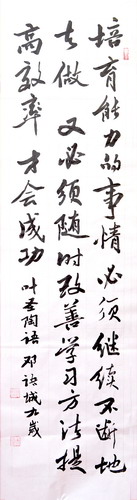 培育能力的事情必须继续不断地
去做 又必须随时改善学习方法提
高效率 才会成功 叶圣陶语 邓诗城九岁